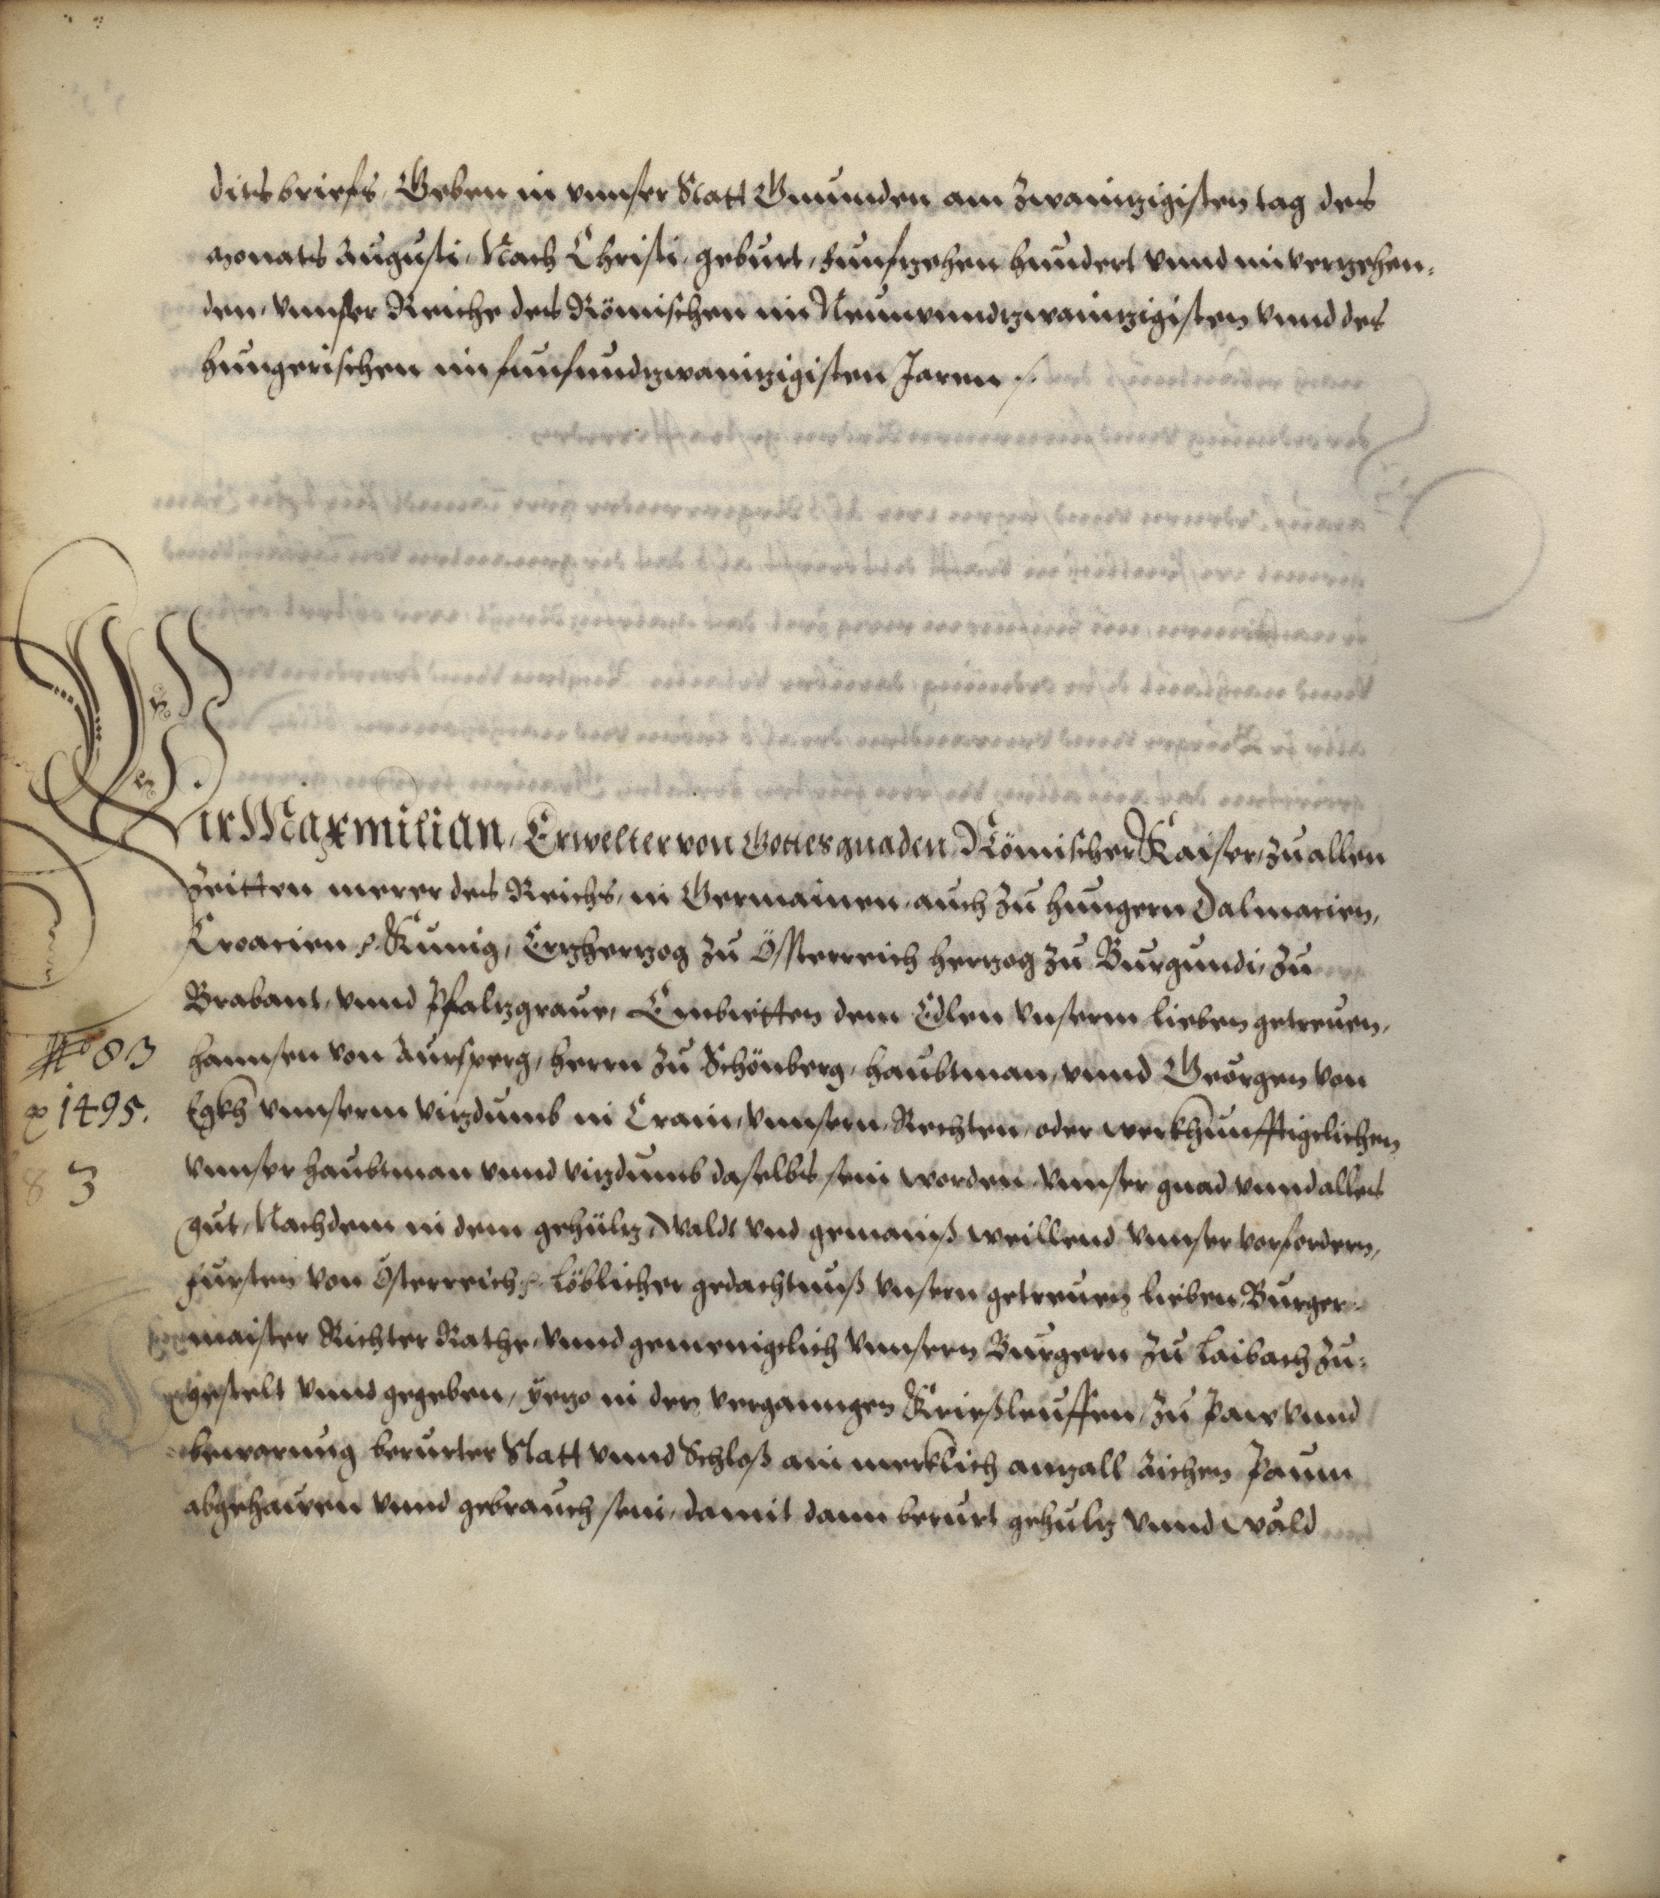 ditsbriefs, Geben in vnnser Statt Gmunden am zwaintzigisten tag des
monats Augusti, Nach Christi geburt, funfzehen hundert vnnd im vierzehen-
den, vnnser Reiche des Römischen im Neunvnndzwaintzigisten vnnd des
hungerischen im funfundzwaintzigisten Jaren
Wir Maxmilian, Erwelter von Gottes gnaden, Römischer Kaiser, zu allen
zeitten merer des Reichs, in Germainen, auch zu hungern Dalmacien,
Croacien Kunig, Ertzhertzog zu Össterreich hertzog zu Burgundi, zu
Brabant, vnnd Pfaltzgraue, Embietten dem Edlen vnserm lieben getreuen,
hannsen von Aursperg, herrn zu Schönberg, haubtman, vnnd Geörgen von
Egkh vnnserm vitzdumb in Crain, vnnsern Rechten, oder wer khunfftigelichen
vnnser haubtman vnnd vitzdumb daselbs sein worden vnnser gnad vnnd alles
gut, Nachdem in dem gehültz, Waldt vnd gemainß weillend vnnser vorfordern,
fursten von Österreich löblicher gedachtnuß vnsern getreuen lieben Burger-
maister Richter Rathe, vnnd gemenigclich vnnsern Burgern zu Laibach zu-
gestelt vnnd gegeben, yetzo in den verganngen Krießleuffen, zu paw vnnd
bewarnug berurter Statt vnnd Schloß ain mercklich antzall Aichen Paum
abgehawen vnnd gebrauch sein, damit dann berurt gehultz vnnd wald
No 83
1495.
8 3